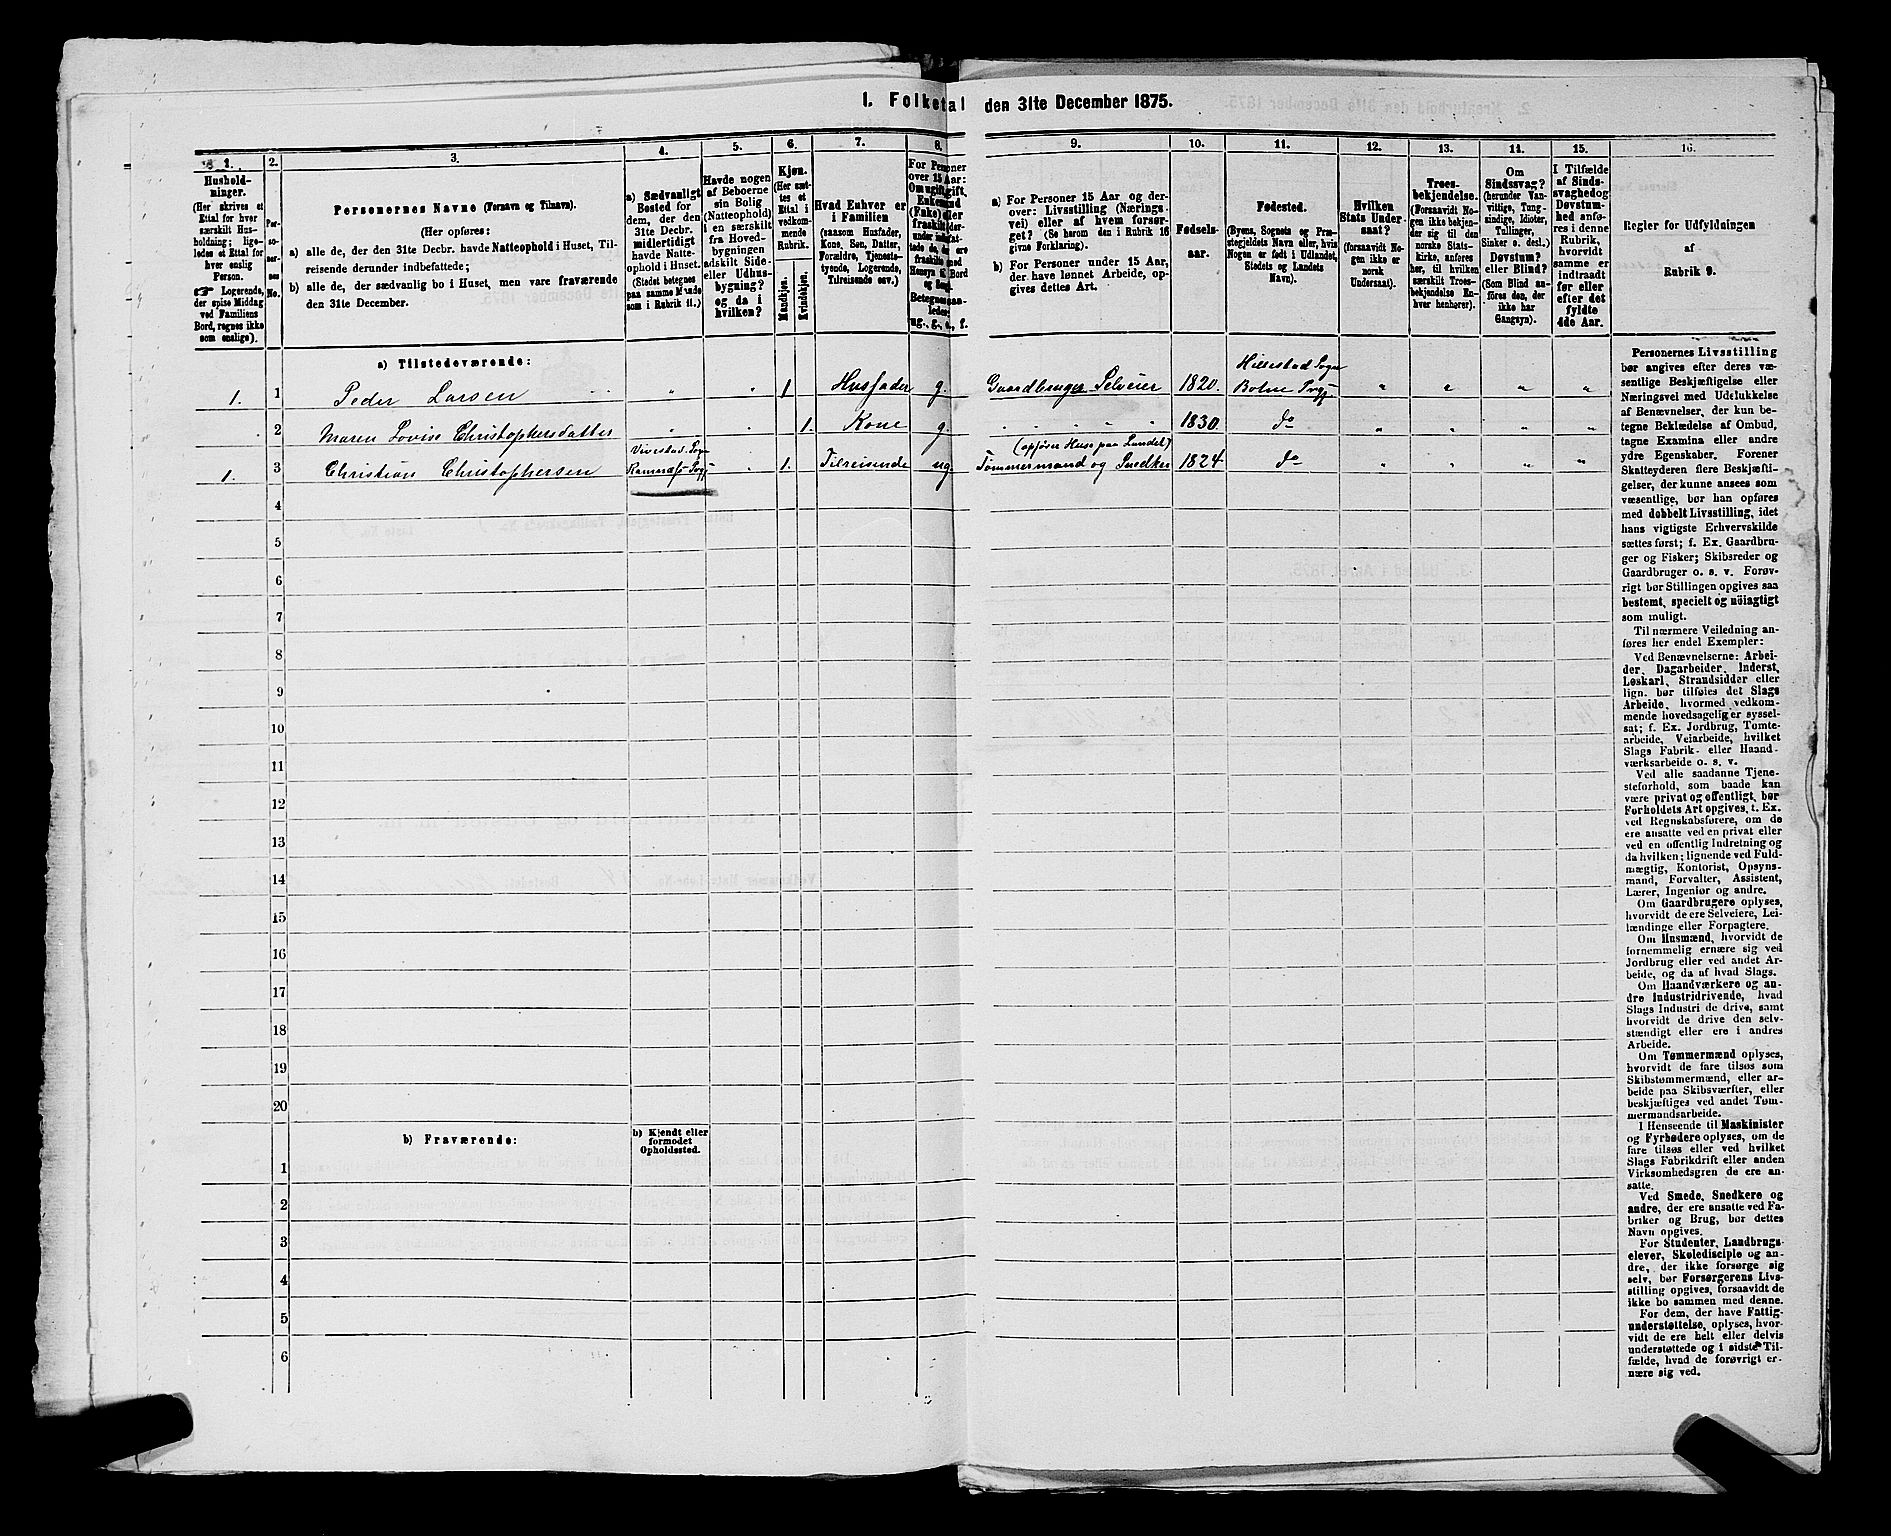 1. Folketal den 31te December 1875.
1.
2.
3.
4.
5.
6.
7.
8.
9.
10.
11.
12.
13.
14.
15.
16.
Hushold-
ninger.
(Her skrives et
Ettal for hver
særskilt Hus-
holdning; lige-
ledes et Ettal for
hver enslig
Person.
☞ Logerende,
der spise Middag
ved Familiens
Bord, regnes ikke
som enslige).
Per-
so-
ner-
nes
No.
Personernes Navne (Fornavn og Tilnavn).
(Her opføres:
a) alle de, der den 31te Decbr. havde Natteophold i Huset, Til-
reisende derunder indbefattede;
b) alle de, der sædvanlig bo i Huset, men vare fraværende
den 31te December.
a) Sædvanligt
Bosted for
dem, der den
31te Decbr.
midlertidigt
havde Natte-
ophold i Huset.
(Stedet betegnes
paa samme Maade
som i Rubrik 11.)
Havde nogen
af Beboerne
sin Bolig
(Natteophold)
i en særskilt
fra Hoved-
bygningen
adskilt Side-
eller Udhus-
bygning?
og da i
hvilken?
Kjøn.
(Her sæt-
tes et
Ettal i
vedkom-
mende
Rubrik.
Mandkjøn.
Kvindekjøn.
Hvad Enhver er
i Familien
(saasom Husfader,
Kone, Søn, Datter,
Forældre, Tjeneste-
tyende, Logerende,
Tilreisende osv.)
For Personer
over 15 Aar:
Om ugift, gift,
Enkemand
(Enke) eller
fraskilt
ug., g., e., f.
a) For Personer 15 Aar og der-
over: Livsstilling (Nærings-
vei) eller af hvem forsør-
get? (Se herom den i Rubrik 16
givne Forklaring).
b) For Personer under 15 Aar,
der have lønnet Arbeide, op-
gives dettes Art.
Fødsels-
aar.
Fødested.
(Byens, Sognets og Præ-
stegjeldets Navn eller, hvis
Nogen er født i Udlandet,
Stedets og Landets
Navn).
Hvilken
Stats Under-
saat?
(forsaavidt No-
gen ikke er
norsk
Undersaat).
Troes-
bekjendelse.
(Forsaavidt No-
gen ikke bekjen-
der sig til den
norske Stats-
kirke, anføres
her, til hvilken
særskilt Troes-
bekjendelse En-
hver henhører).
Om
Sindssvag?
(herunder Van-
vittige, Tung-
sindige, Idioter,
Tullinger,
Sinker o. desl.)
Døvstum?
eller Blind?
(Som Blind an-
føres den, der
ikke har
Gangsyn).
I Tilfælde
af Sinds-
svaghed og
Døvstum-
hed anfø-
res i denne
Rubrik,
hvorvidt
samme er
indtraadt
før eller
efter det
fyldte
4de Aar.
Regler for Udfyldningen
af
Rubrik 9.
a) Tilstedeværende:
1. 1 Peder Larsen " " 1 Husfader g. Gaardbruger Selveier 1820. Hillestad Sogn Botne Prgj. " " " "
2 Maren Lovise Christophersdatter " " 1. Kone g. 1830 do " " " "
1. 3 Christian Christophersen Vivestad Sogn Ramnæs Prgj. " 1. Tilreisende ug. (opfører Huse paa Landet) Tømmermand og Snedker 1824 do " " " "
4
5
6
7
8
9
10
11
12
13
14
15
16
17
18
19
20
b) Fraværende:
b) Kjendt eller
formodet
Opholdssted.
1
2
3
4
5
6
Personernes Livsstilling
bør angives efter deres væ-
sentlige Beskjæftigelse eller
Næringsvei med Udelukkelse
af Benævnelser, der kun be-
tegne Beklædelse af Ombud,
tagne Examina eller andre
ydre Egenskaber. Forener
Skatteyderen flere Beskjæfti-
gelser, der kunne ansees som
væsentlige, bør han opføres
med dobbelt Livsstilling, idet
hans vigtigste Erhvervskilde
sættes først; f. Ex. Gaardbru-
ger og Fisker; Skibsreder og
Gaardbruger o. s. v. Forøv-
rigt bør Stillingen opgives saa
bestemt, specielt og nöiagtigt
som muligt.
Til nærmere Veiledning an-
føres her endel Exempler:
Ved Benævnelserne: Arbei-
der, Dagarbeider, Inderst,
Løskarl, Strandsidder eller
lign. bør tilføies det Slags
Arbeide, hvormed vedkom-
mende hovedsagelig er syssel-
sat; f. Ex. Jordbrug, Tomte-
arbeide, Veiarbeide, hvilket
Slags Fabrik- eller Haand-
værksarbeide o. s. v.
Ved alle saadanne Tjene-
steforhold, som baade kan
være privat og offentligt, bør
Forholdets Art opgives, t. Ex.
ved Regnskabsførere, om de
ere ansatte ved en privat eller
ved en offentlig Indretning og
da hvilken; lignende ved Fuld-
mægtig, Kontorist, Opsyns-
mand, Forvalter, Assistent,
Lærer, Ingeniør og andre.
Om Gaardbrugere oplyses,
hvorvidt de ere Selveiere, Lei-
lændinge eller Forpagtere.
Om Husmænd, hvorvidt de
fornemmelig ernære sig ved
Jordbrug eller ved andet Ar-
beide, og da af hvad Slags.
Om Haandværkere og an-
dre Industridrivende, hvad
Slags Industri de drive, samt
hvorvidt de drive den selv-
stændigt eller ere i andres
Arbeide.
Om Tømmermænd oplyses,
hvorvidt de fare tilsøs som
Skibstømmermænd, eller ar-
beide paa Skibsværfter, eller
beskjæftiges ved andet Tøm-
mermandsarbeide.
I Henseende til Maskinister
og Fyrbødere oplyses, om de
fare tilsøs eller ved hvilket
Slags Fabrikdrift eller anden
Virksomhedsgren de ere an-
satte.
Ved Smede, Snedkere og
andre, der ere ansatte ved Fa-
briker og Brug, bør dettes
Navn opgives.
For Studenter, Landbrugs-
elever, Skoledisciple og an-
dre, der ikke forsørge sig
selv, bør Forsørgerens Livs-
stilling opgives, forsaavidt de
ikke bo sammen med denne.
For dem, der have Fattig-
understøttelse, oplyses, hvor-
vidt de ere helt eller delvis
understøttede og i sidste Til-
fælde, hvad de forøvrigt er-
nære sig ved.